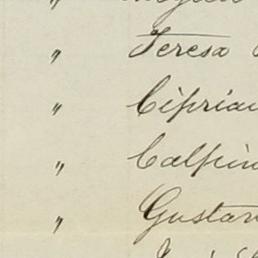 " Teresa
" Ciprian
" Calpin
" Gustav